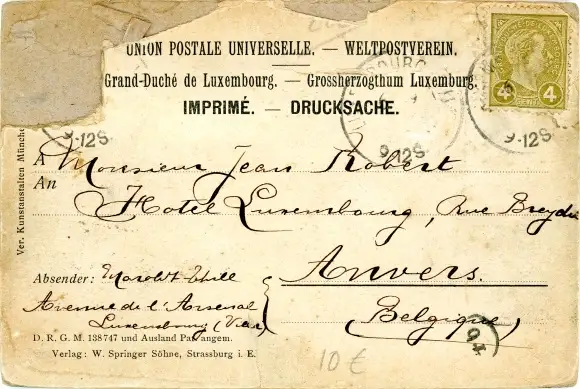 UNION POSTALE UNIVERSELLE. — WELTPOSTVEREIN.
Grand-Duché de Luxembourg. — Grossherzogthum Luxemburg.
IMPRIMÉ. — DRUCKSACHE.
4 4
9-12S
9-12S
9-12S
A Monsieur Jean Robert
An
Hotel Luxembourg, Rue Breydel
Anvers.
(Belgique)
Absender:
Avenue de l'Arsenal
Luxembourg (Ville)
D. R. G. M. 138747 und Ausland Pat. angem.
Verlag: W. Springer Söhne, Strassburg i. E.
Ver. Kunstanstalten Münche
10 €